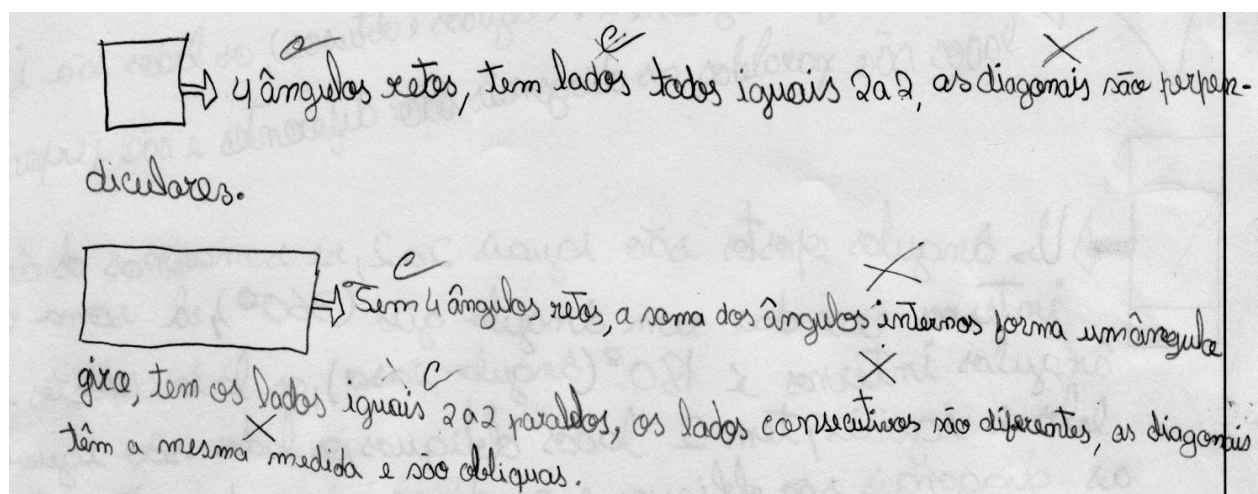 4 ângulos retos, tem lados todos iguais 2a2, as diagonais são perpen-
diculares.
Tem 4 ângulos retos, a soma dos ângulos internos forma um ângulo
giro, tem os lados iguais 2a2 paralelos, os lados consecutivos são diferentes, as diagonais
têm a mesma medida e são obliquas.